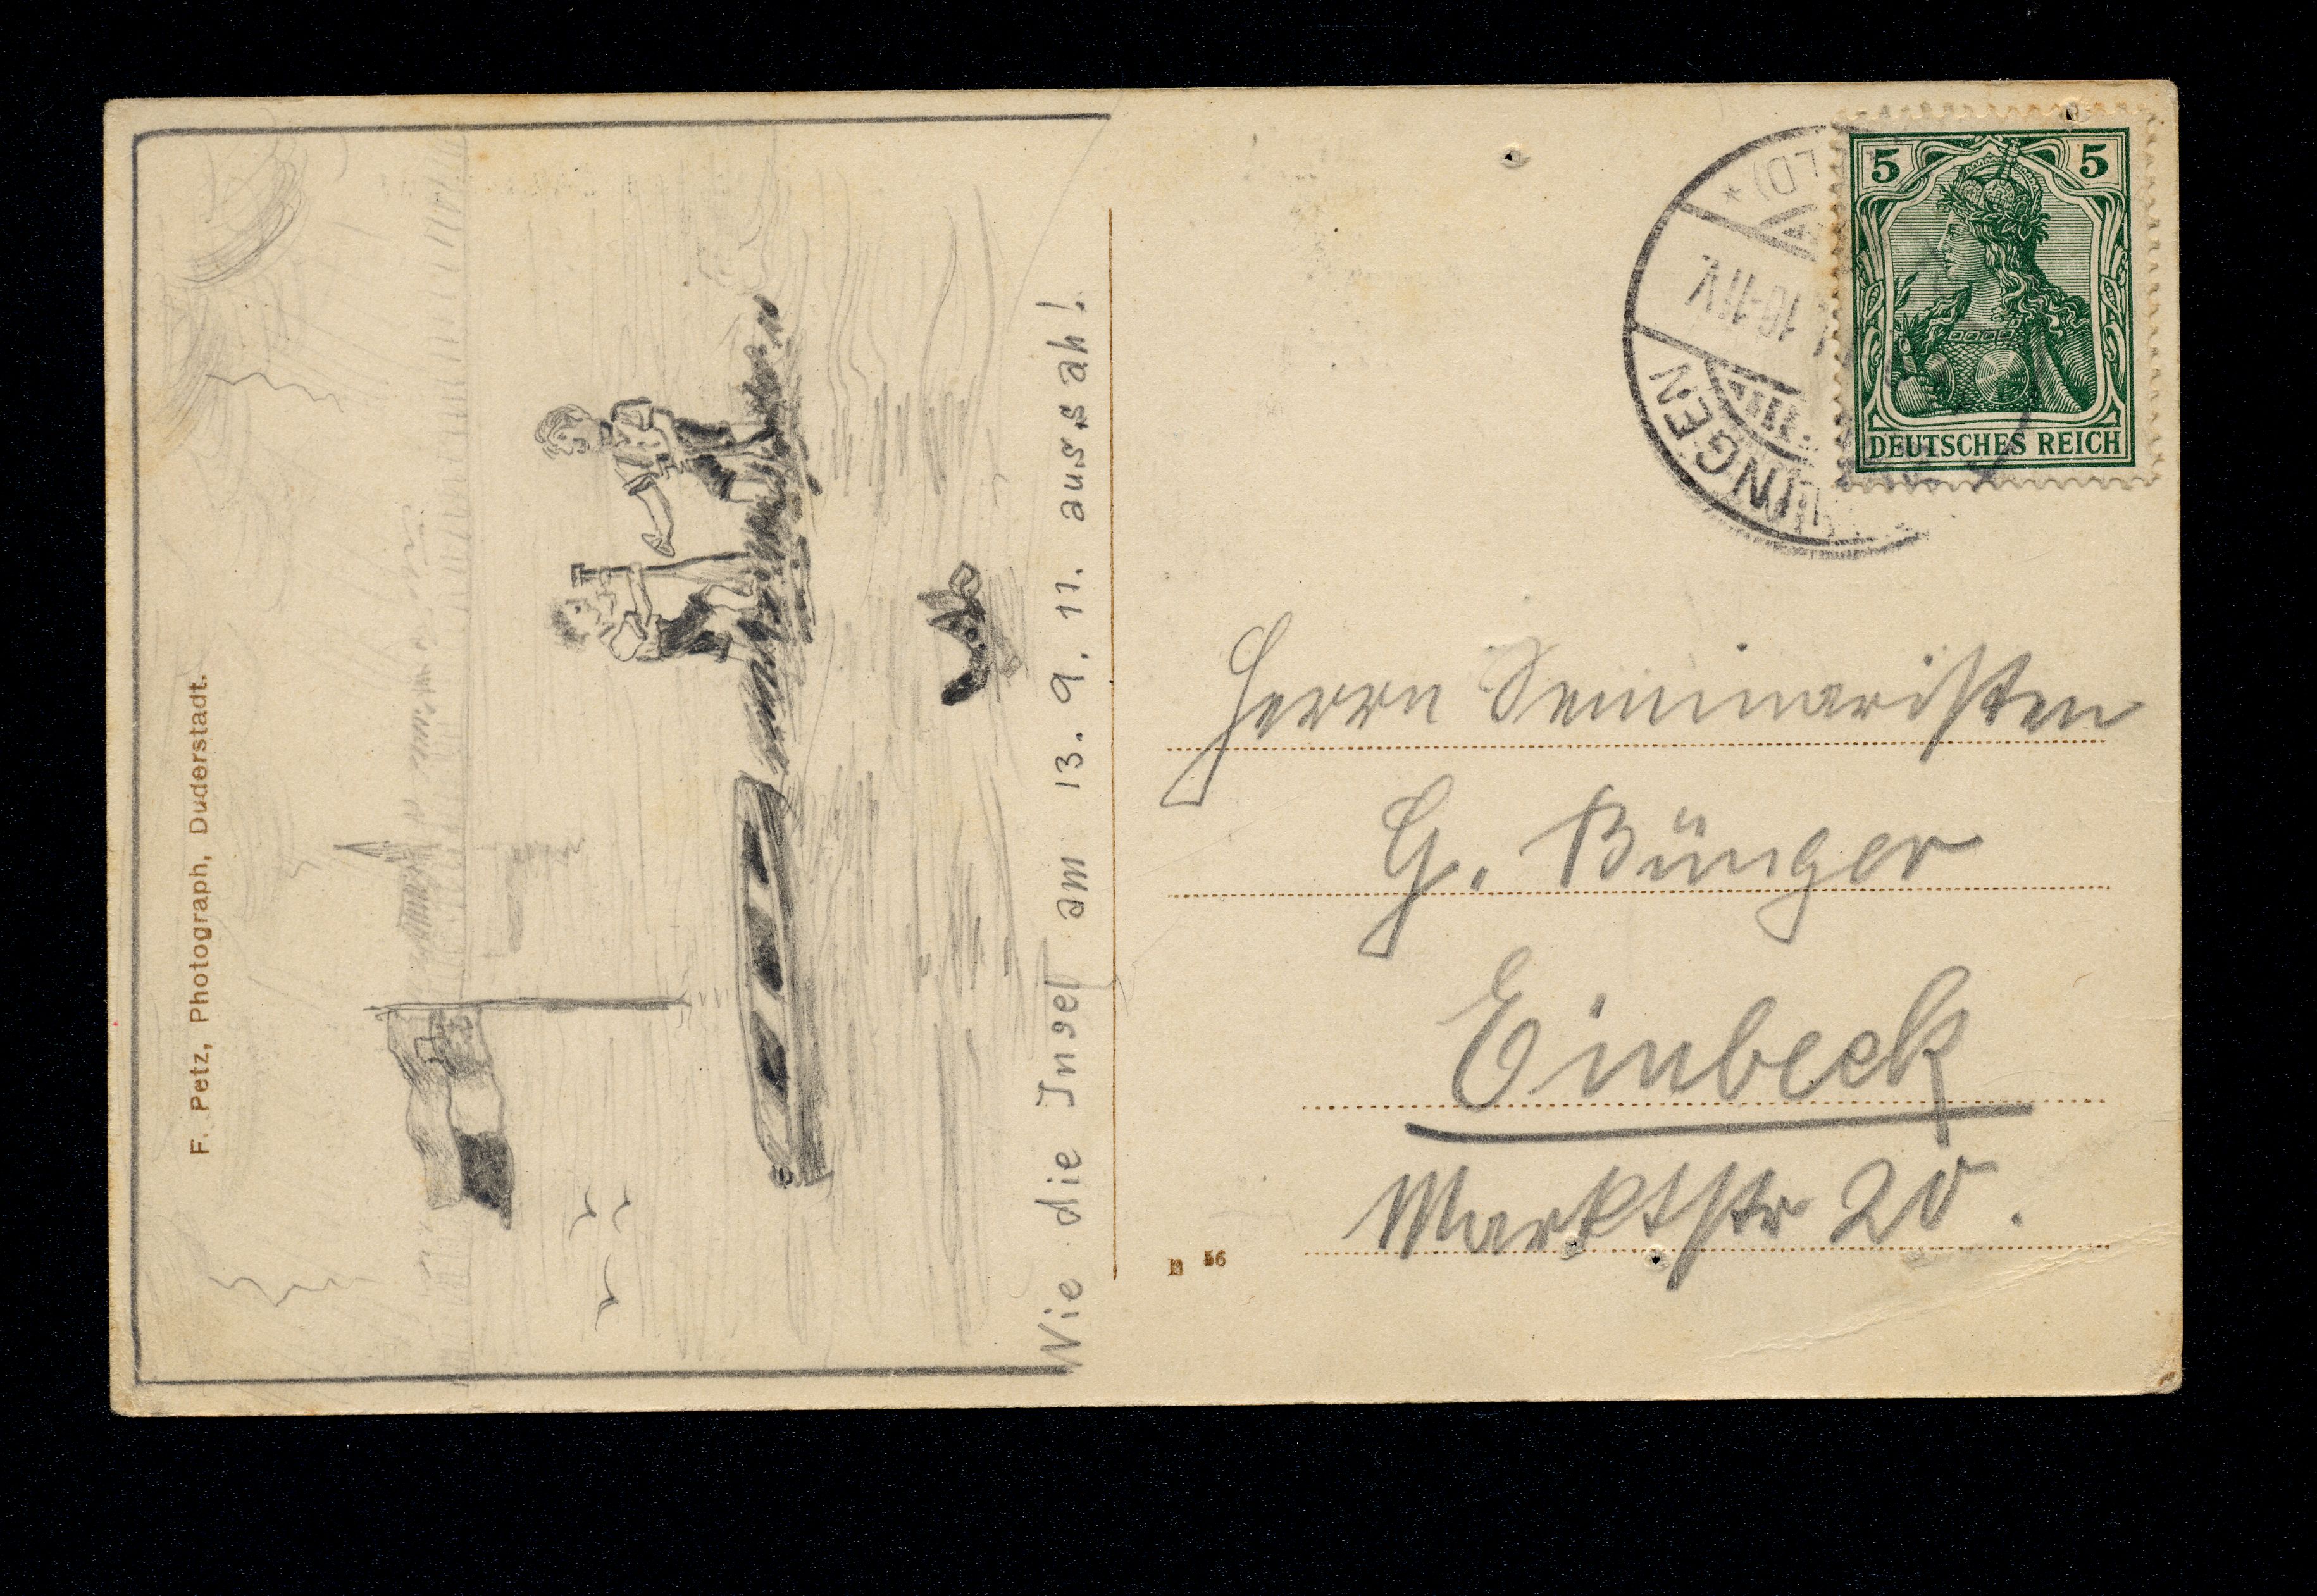 F. Petz, Photograph, Duderstadt.
Wie die Insel am 13. 9. 11. aussah!
5 5
DEUTSCHES REICH
10-11V
LD) *
Herrn Seminaristen
G. Bünger
Einbeck
Marktstr 20.